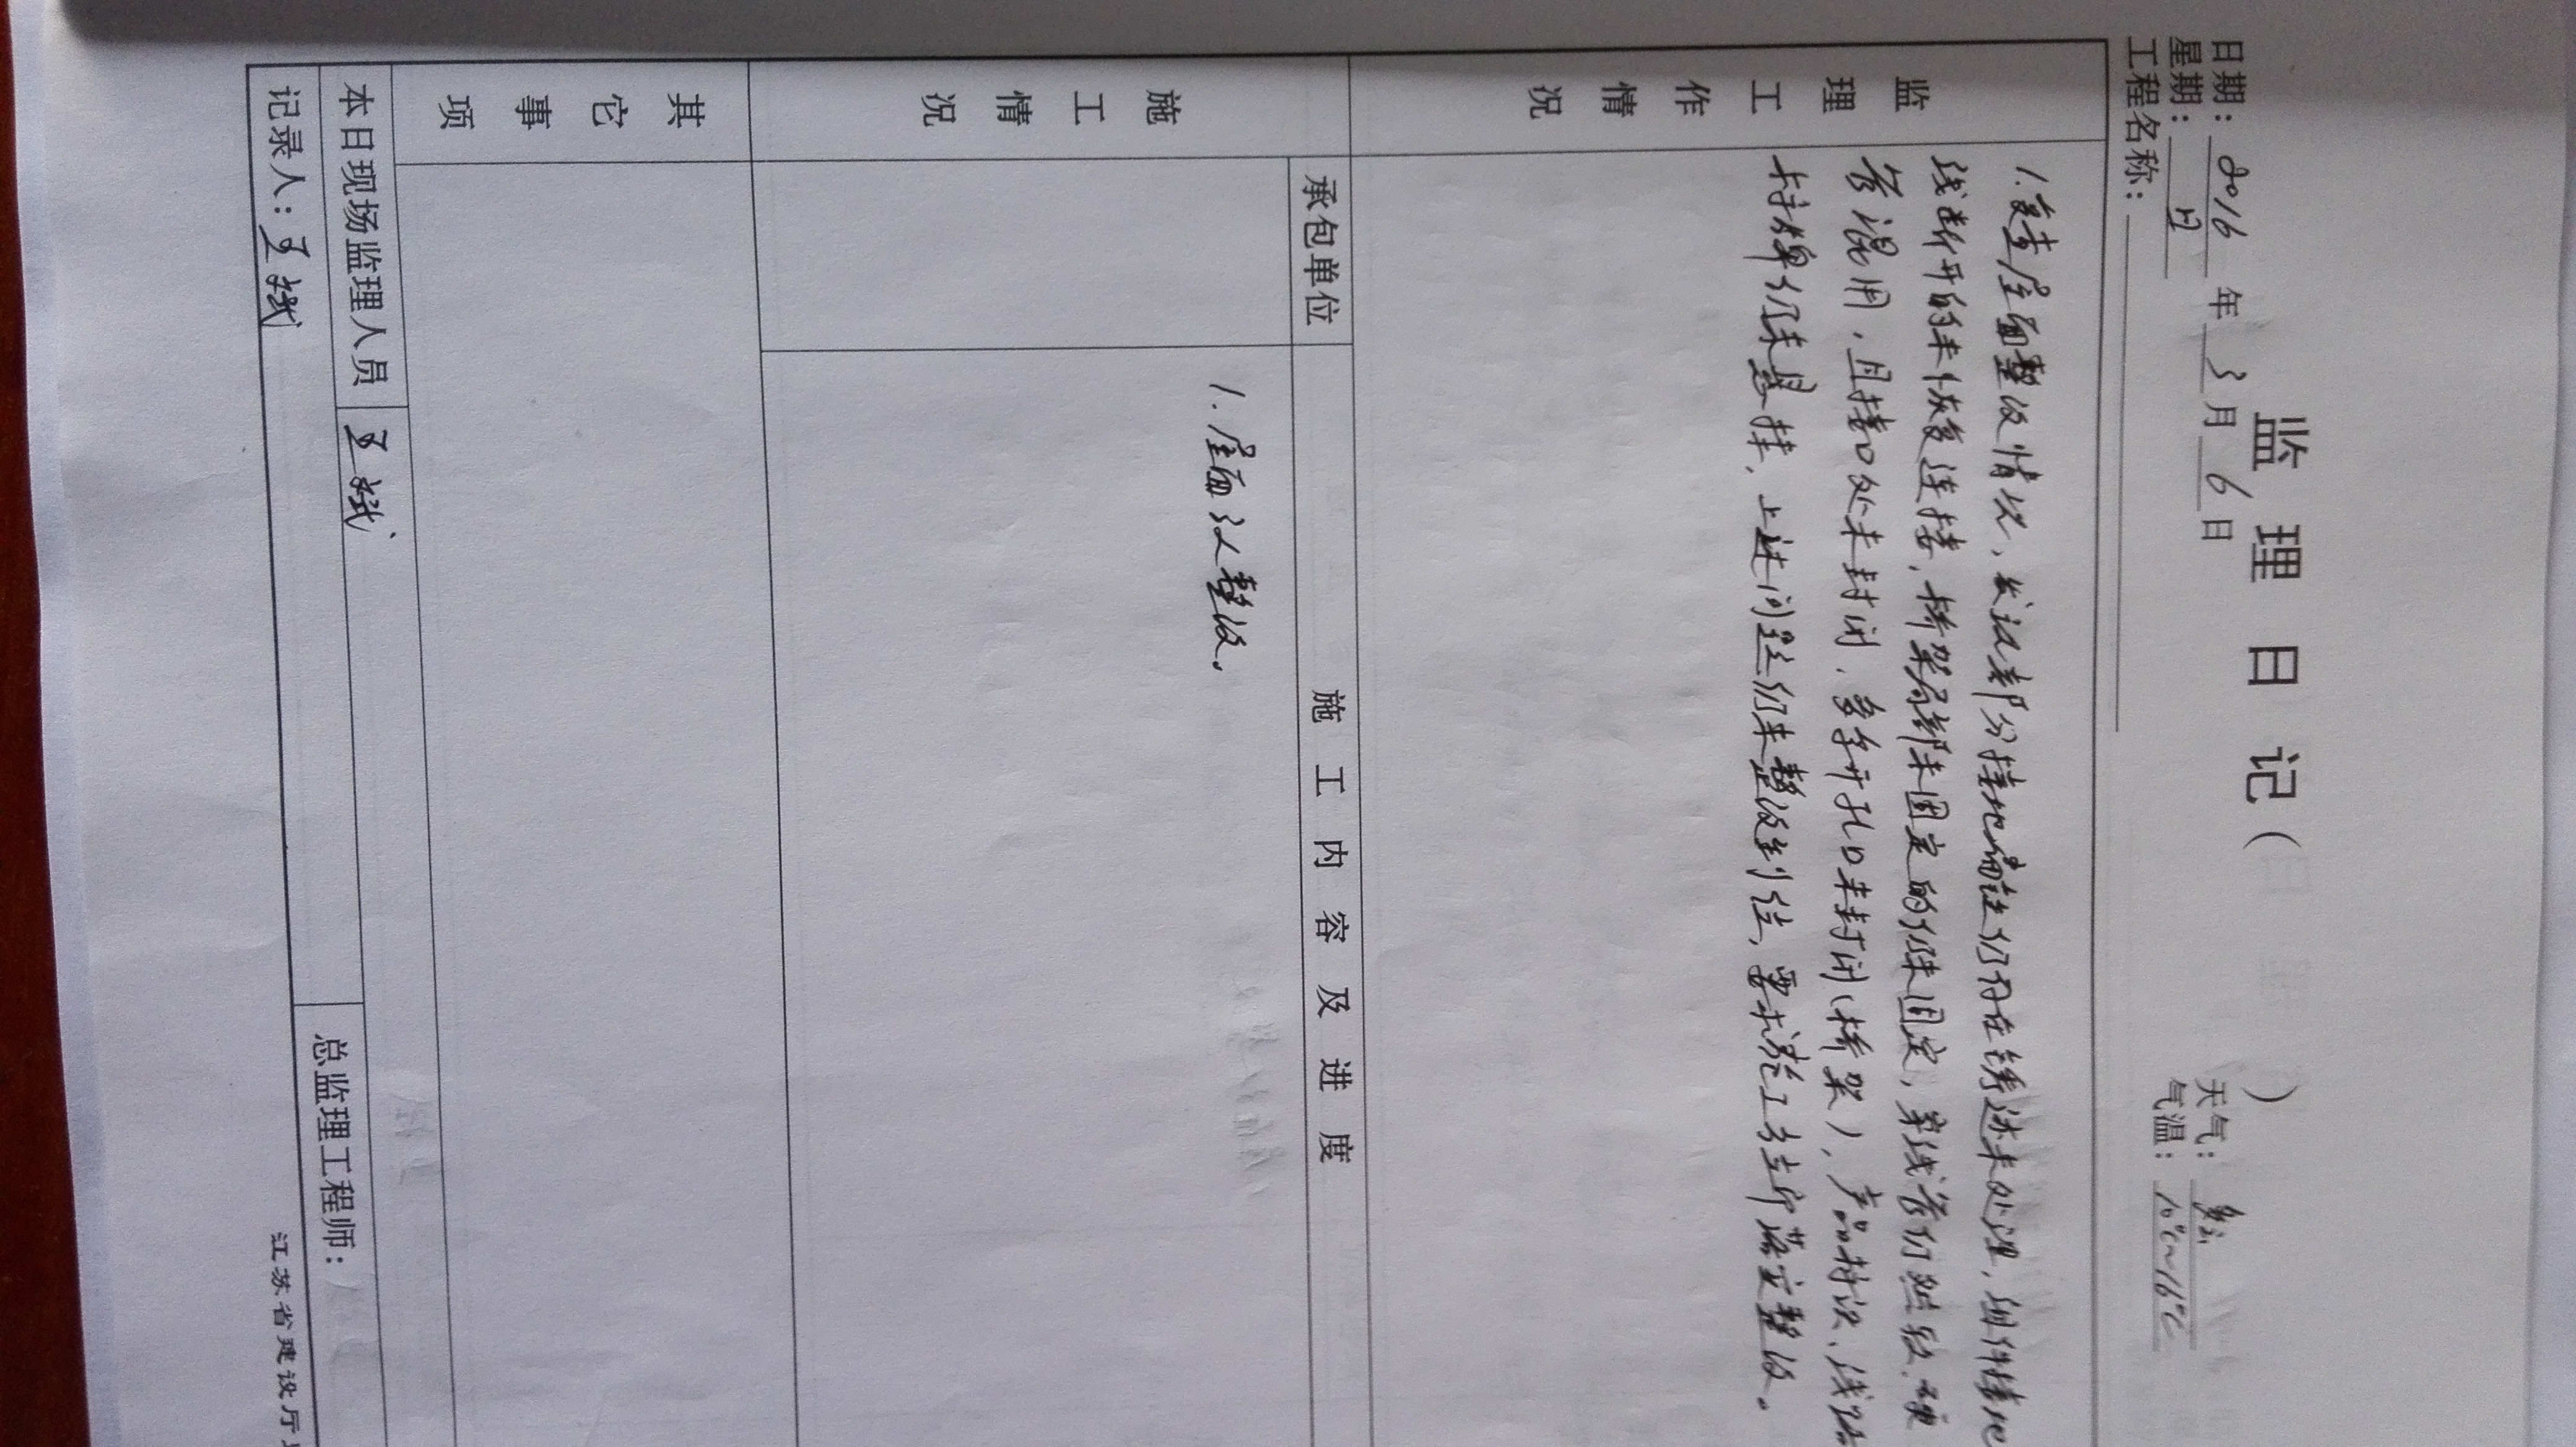 监理日记（ ）
日期：2016年3月6日 天气：多云
星期：日 气温：10℃~16℃
工程名称：
监理工作情况
1.复查屋面整改情况，发现部分接地扁铁仍存在锈迹未处理，组件接地
线断开的未恢复连接，桥架局部未固定的仍未固定，穿线管仍然软、硬
管混用，且接口处未封闭，多余开孔口未封闭（桥架），产品标识、线路
标示牌仍未悬挂，上述问题仍未整改到位，要求施工方立即落实整改。
施工情况
承包单位 施工内容及进度
1.屋面组织整改。
其它事项
本日现场监理人员
记录人： 总监理工程师：
江苏省建设厅